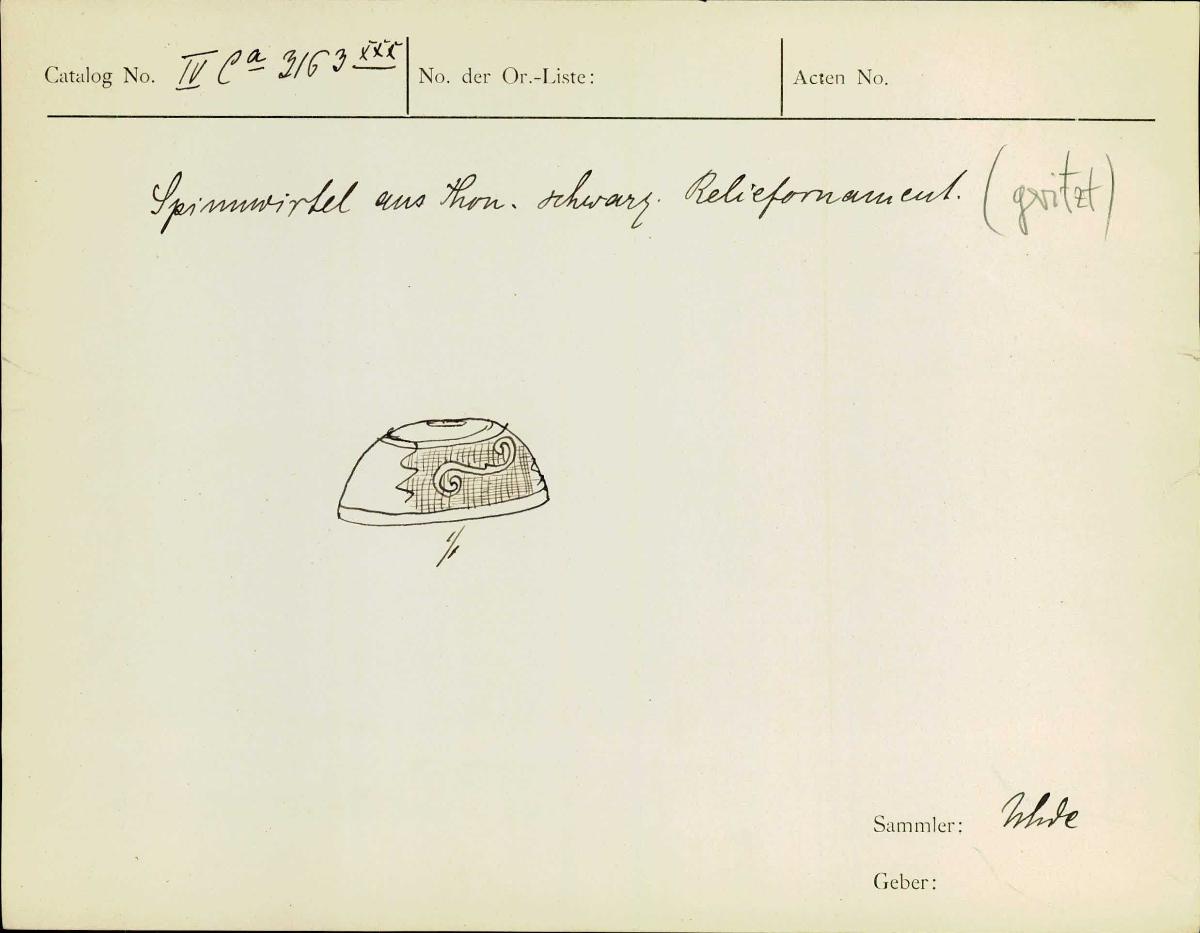 Catalog No. IV Ca 3163 xxx No. der Or.-Liste: Acten No.
Spinnwirtel aus Thon. schwarz. Reliefornament. (gritzt)
1/1
Sammler: Uhde
Geber: